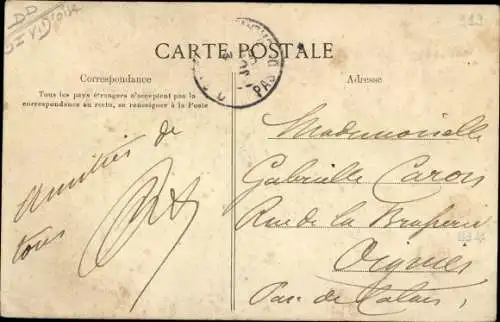 DD
919
CARTE POSTALE
Correspondance
Tous les pays étrangers n'acceptent pas la
correspondance au recto, se renseigner à la Poste
Adresse
PAS D
Amitiés de
tous
Mademoiselle
Gabrielle Caron
Rue de la Brasserie
Oignies
Pas de Calais